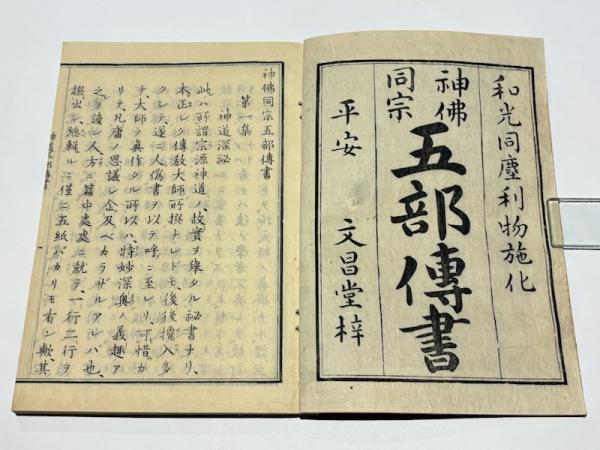 和光同塵利物施化
神佛
同宗
五部傳書
平安 文昌堂梓
神佛同宗五部傳書
第一集
神道深祕
此ハ所謂宗源神道人、故實ヲ擧タル秘書ナリ、
本正シク傳教大師所撰ナレドモ、後後攙入多
クシテ遂ニ人偽書ヲ以テ呼ニ至レリ、可惜カ
ナ、大師ノ眞作タル所以ハ、特妙深奧ノ義趣ア
リテ、凡庸ノ思議シ企及ベカラザルアレバ也、
之ヲ讀ン人方ニ篇中處處ニ就テ、一行二行ヲ
撥出シ、總輯ルニ僅ニ五紙バカリモ有ン歟、其